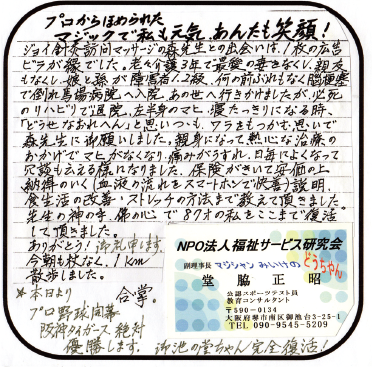 プロからほめられた
マジックで私も元気、あんたも笑顔!
ジョイ針灸訪問マッサージの森先生との出会いは、1枚の広告
ビラが縁でした。老々介護3年で最愛の妻をなくし、親友
もなくし、娘と孫が障害者1.2級、何の前ぶれもなく脳梗塞
で倒れ馬場病院へ入院。あの世へ行きかけましたが、必死
のリハビリで退院。左半身のマヒ、寝たっきりになる時、
「どうせなおれへん」と思いつつも、ワラをもつかむ思いで
森先生に御願いしました。親身になって熱心な治療の
おかげでマヒがなくなり、痛みがうすれ、日毎によくなって
冗談も云える様になりました。保険がきいて安価の上
納得のいく(血液の流れをスマートホンで快善)説明、
食生活の改善・ストレッチの方法まで教えて頂きました。
先生の神の手、佛の心で87才の私をここまで復活
して頂きました。
ありがとう!御礼申します。
今朝も杖なく、1Km
散歩しました。
合掌。
*本日より
プロ野球開幕
阪神タイガース絶対
優勝します。御池の堂ちゃん完全復活!
NPO法人福祉サービス研究会
副理事長 マジシャン みいけの どうちゃん
堂脇 正昭
公認スポーツテスト員
教育コンサルタント
〒590-0134
大阪府堺市南区御池台3-25-1
TEL 090-9545-5209